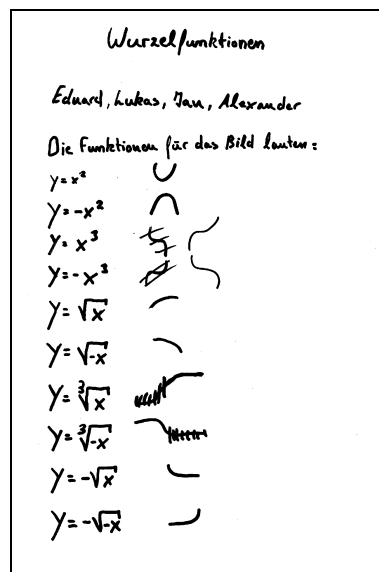 Wurzelfunktionen
Eduard, Lukas, Jan, Alexander
Die Funktionen für das Bild lauten:
y = x²
y = -x²
y = x³
y = -x³
y = √x
y = √-x
y = ³√x
y = ³√-x
y = -√x
y = -√-x